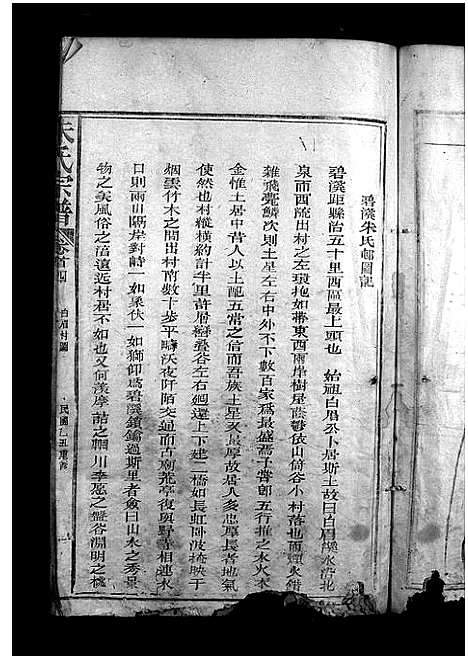 碧溪朱氏邨圖記
碧溪距縣治五十里西區最上頭也 始祖白眉公卜居斯土故曰白眉溪水沿北
泉而西流出村之左環抱如帶東西兩岸樹屋蔭鬱依山倚谷小村落也而煙火錯
雜飛甍鱗次則土星左右中外不下數百家爲最盛焉予嘗卽五行推之水火木
金惟土居中昔人以土配五常之信而吾族土星又最厚故居人多忠厚長者地氣
使然也村縱橫約計半里許層巒叠谷左右迴還上下建二橋如長虹卧波掩映于
烟雲竹木之間出村南數十步平疇沃夜阡陌交通而古廟荒亭復與野寺相連水
口則兩山隔岸對詩一如象伏一如獅仰爲碧溪鎖鑰過斯里者僉曰山水之秀景
物之美風俗之淳遠近村居不如也又何羨摩詰之輞川李愿之盤谷淵明之桃
朱氏宗譜
卷首四
白眉村圖
民國乙丑重修